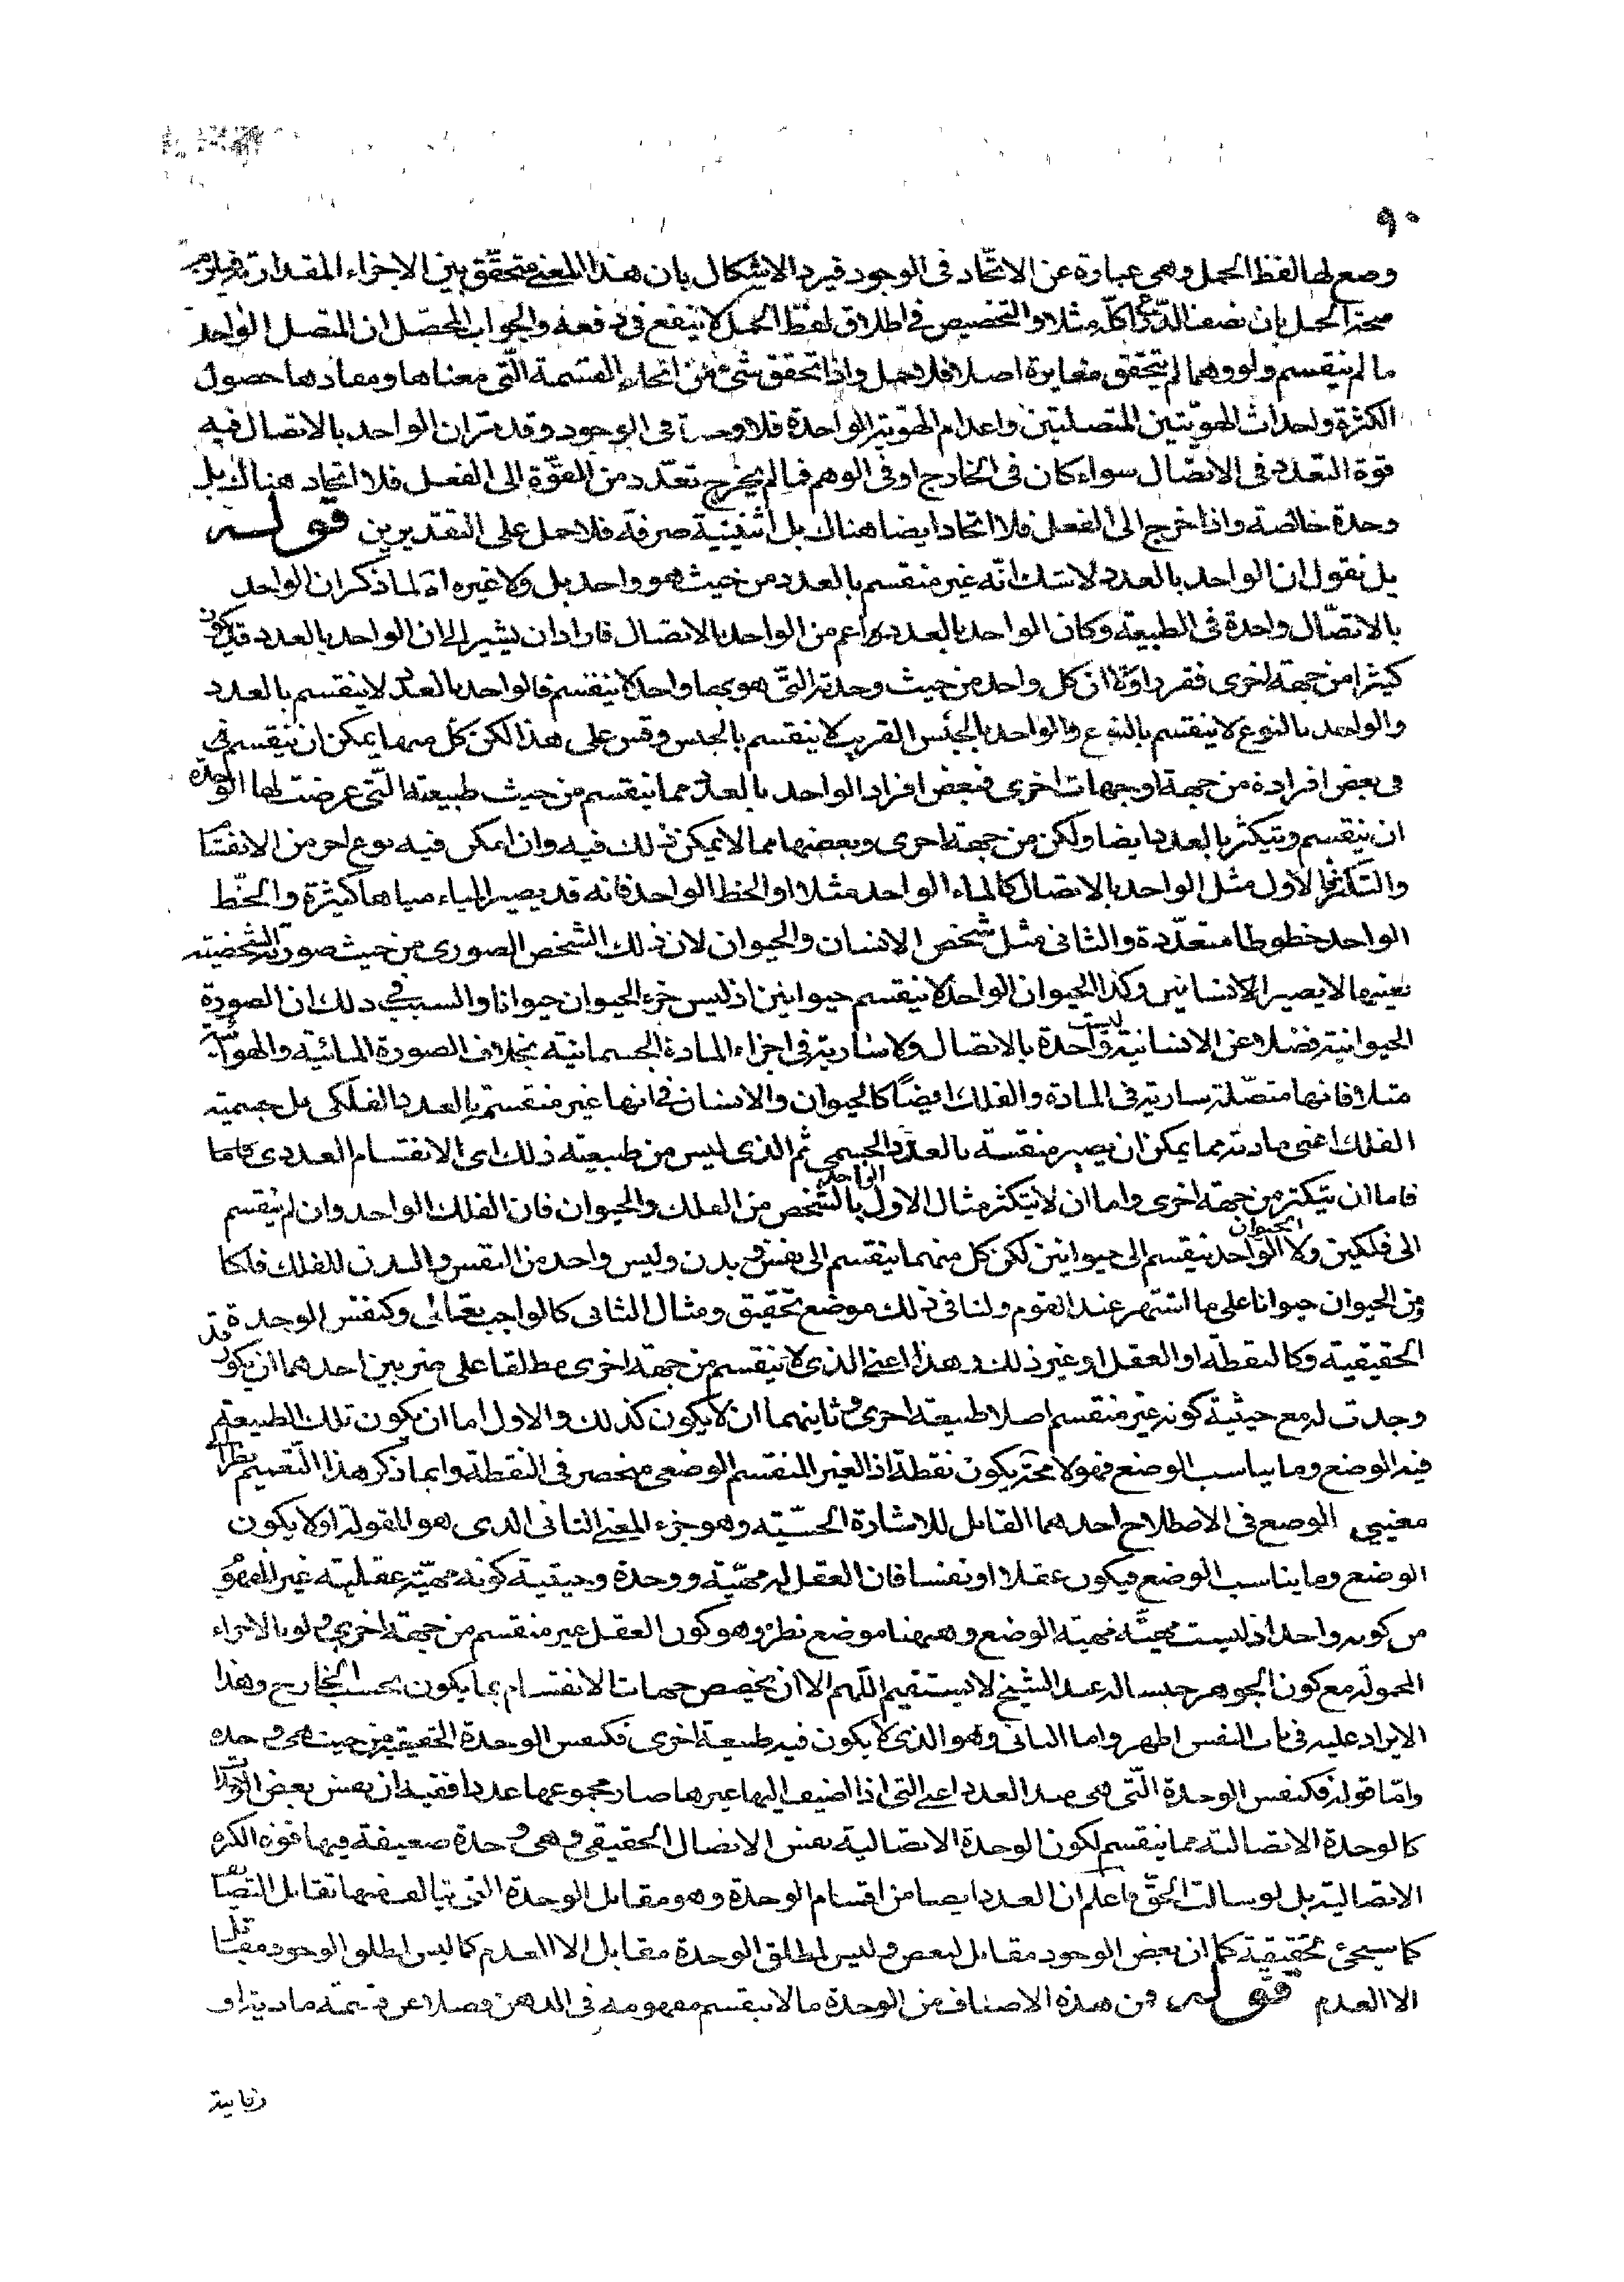 ٩٠
وضع لها لفظ الحمل وهى عبارة عن الاتّحاد فى الوجود فيرد الاشكال بان هذا المعنى متحقّق بين الاجزاء المقدارية فيلزم
صحة الحمل بان نصف الذراع كلّه مثلا والتخصيص فى اطلاق لفظ الحمل لا ينفع فى دفعه والجواب المحصّل ان المتصل الواحد
ما لم ينقسم ولو وهما لم يتحقق مغايرة اصلا فلا حمل واذا تحقق شئ من انحاء القسمة الّتى معناها ومفادها حصول
الكثرة واحداث الهويّتين المتصلتين واعدام الهويّة الواحدة فلا وحدة فى الوجود وقد مرّ ان الواحد بالاتصال فيه
قوة التعدد فى الاتصال سواء كان فى الخارج او فى الوهم فما لم يخرج تعدّد من القوّة الى الفعل فلا اتحاد هناك بل
وحدة خالصة واذا خرج الى الفعل فلا اتحاد ايضا هناك بل اثنينية صرفة فلا حمل على التقديرين قوله
بل نقول ان الواحد بالعدد لا شك انّه غير منقسم بالعدد من حيث هو واحد بل ولا غيره اه لما ذكر ان الواحد
بالاتصّال واحدة فى الطبيعة وكان الواحد بالعدد اعم من الواحد بالاتصال فاراد ان يشير الى ان الواحد بالعدد قد يكون
كثيرا من جهة اخرى فقرر اولا ان كل واحد من حيث وحدته التى هو بها واحد لا ينقسم فالواحد بالعدد لا ينقسم بالعدد
والواحد بالنوع لا ينقسم بالنوع والواحد بالجنس القريب لا ينقسم بالجنس وقس على هذا لكن كل منها يمكن ان ينقسم فى
فى بعض افراده من جهة او جهات اخرى فبعض افراد الواحد بالعدد مما ينقسم من حيث طبيعته الّتى عرضت لها الوحدة
ان ينقسم ويتكثر بالعدد ايضا ولكن من جهة اخرى وبعضها مما لا يمكن ذلك فيه وان امكن فيه نوع اخر من الانقسام
والتكثر فالاول مثل الواحد بالاتصال كالماء الواحد مثلا او الخط الواحد فانه قد يصير المياه مياها كثيرة والخّط
الواحد خطوطا متعدّدة والثانى مثل شخص الانسان والحيوان لان ذلك الشخص الصورى من حيث صورته الشخصيته
بعينها لا يصير الانسانين وكذا الحيوان الواحد لا ينقسم حيوانين اذ ليس جزء الحيوان حيوانا والسبب فى ذلك ان الصورة
الحيوانية فضلا عن الانسانية ليست واحدة بالاتصال ولا سارية فى اجزاء المادة الجسمانية بخلاف الصورة المائية والهوائية
مثلا فانها متصّلة سارية فى المادة والفلك ايضًا كالحيوان والانسان فانها غير منقسم بالعدد الفلكى بل جسمية
الفلك اعنى مادته مما يمكن ان يصير منقسمة بالعدد الجسمى ثم الذى ليس من طبيعته ذلك اى الانقسام العددى
فاما ان يتكثر من جهة اخرى واما ان لا يتكثر مثال الاول الواحد بالشخص من الفلك والحيوان فان الفلك الواحد وان لم ينقسم
الى فلكين ولا الحيوان الواحد ينقسم الى حيوانين لكن كل منهما ينقسم الى نفس و بدن وليس واحد من النفس والبدن للفلك فلكا
ومن الحيوان حيوانا على ما اشتهر عند القوم ولنا فى ذلك موضع تحقيق ومثال الثانى كالواجب تعالى وكنفس الوحدة
الحقيقية وكالنقطة او العقل او غير ذلك وهذا اعنى الذى لا ينقسم من جهة اخرى مطلقا على ضربين احدهما ان يكون قد
وجدت له مع حيثية كونه غير منقسم اصلا طبيعة اخرى وثانيهما ان لا يكون كذلك والاول اما ان يكون تلك الطبيعة
فيه الوضع وما يناسب الوضع فهو لا محة يكون نقطة اذ الغير المنقسم الوضعى منحصر فى النقطة وانما ذكر هذا التقسيم نظرا الى
معنيى الوضع فى الاصطلاح احدهما القابل للاشارة الحسّية وهو جزء المعنى الثانى الذى هو المقولة اولا يكون
الوضع وما يناسب الوضع فيكون عقلا او نفسا فان العقل له مهيّة ووحدة وحيثية كونه مهيّة عقلية غير المفهوم
من كونه واحدا اذ ليست مهيّته مهية الوضع وههنا موضع نظر وهو كون العقل غير منقسم من جهة اخرى ولو بالاجزاء
المحمولة مع كون الجوهر جنسا له عند الشيخ لا يستقيم اللّهم الا ان يخصص جهات الانقسام بما يكون بحسب الخارج وهذا
الايراد عليه فى باب النفس اظهر واما الثانى وهو الذى لا يكون فيه طبيعة اخرى فكنفس الوحدة الحقيقية من حيث هى وحدة
وامّا قوله فكنفس الوحدة الّتى هى مبدا العدد اعنى التى اذا اضيف اليها غيرها صار مجموعها عددا ففيه ان نفس بعض الوحدات
كالوحدة الاتصالية مما ينقسم لكون الوحدة الاتصالية نفس الاتصال الحقيقى وهى وحدة ضعيفة فيها قوة الكثرة
الاتصالية بل لو سالت الحقّ فاعلم ان العدد ايضا من اقسام الوحدة وهو مقابل الوحدة التى يتالف فيها تقابل التضايف
كما سيجئ تحقيقه كما ان بعض الوجود مقابل لبعض وليس لمطلق الوحدة مقابل الا العدم كما ليس لمطلق الوجود مقابل
الا العدم قوله ومن هذه الاصناف من الوحدة ما لا ينقسم مفهومه فى الذهن فضلا عن قسمة مادية او
زمانية